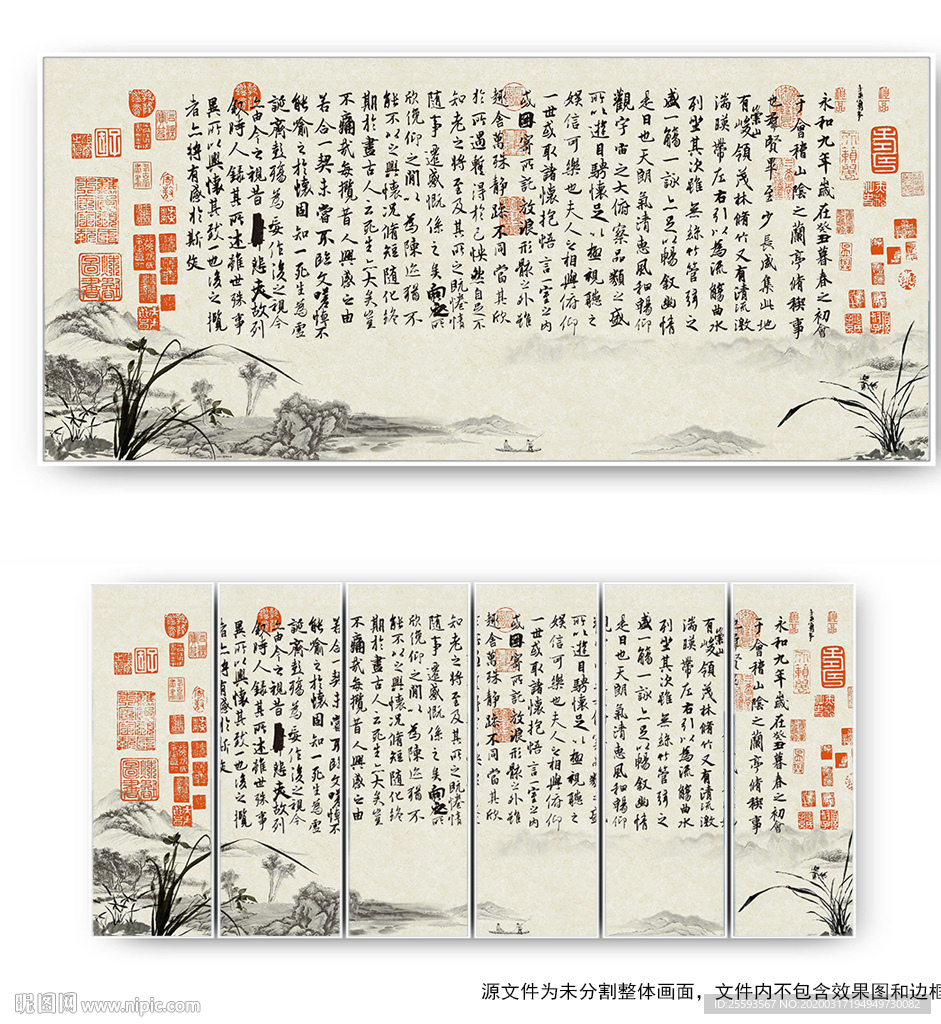 永和九年歲在癸丑暮春之初會
于會稽山陰之蘭亭脩稧事
也羣賢畢至少長咸集此地
有崇山峻領茂林脩竹又有清流激
湍暎帶左右引以為流觴曲水
列坐其次雖無絲竹管弦之
盛一觴一詠亦足以暢敘幽情
是日也天朗氣清惠風和暢仰
觀宇宙之大俯察品類之盛
所以遊目騁懷足以極視聽之
娛信可樂也夫人之相與俯仰
一世或取諸懷抱悟言一室之內
或因寄所託放浪形骸之外雖
趣舍萬殊靜躁不同當其欣
於所遇蹔得於己怏然自足不
知老之將至及其所之既惓情
隨事遷感慨係之矣向之所
欣俛仰之閒以為陳迹猶不
能不以之興懷況脩短隨化終
期於盡古人云死生亦大矣豈
不痛哉每攬昔人興感之由
若合一契未嘗不臨文嗟悼不
能喻之於懷固知一死生為虛
誕齊彭殤為妄作後之視今
亦由今之視昔悲夫故列
敘時人錄其所述雖世殊事
異所以興懷其致一也後之攬
者亦將有感於斯文
永和九年歲在癸丑暮春之初會
于會稽山陰之蘭亭脩稧事
有崇山峻領茂林脩竹又有清流激
湍暎帶左右引以為流觴曲水
列坐其次雖無絲竹管弦之
盛一觴一詠亦足以暢敘幽情
是日也天朗氣清惠風和暢仰
所以遊目騁懷足以極視聽之
娛信可樂也夫人之相與俯仰
一世或取諸懷抱悟言一室之內
或因寄所託放浪形骸之外雖
趣舍萬殊靜躁不同當其欣
知老之將至及其所之既惓情
隨事遷感慨係之矣向之所
欣俛仰之閒以為陳迹猶不
能不以之興懷況脩短隨化終
期於盡古人云死生亦大矣豈
不痛哉每攬昔人興感之由
若合一契未嘗不臨文嗟悼不
能喻之於懷固知一死生為虛
誕齊彭殤為妄作後之視今
亦由今之視昔悲夫故列
敘時人錄其所述雖世殊事
異所以興懷其致一也後之攬
者亦將有感於斯文
源文件为未分割整体画面，文件内不包含效果图和边框
昵图网 www.nipic.com
ID:25593567 NO:20200317194949730082